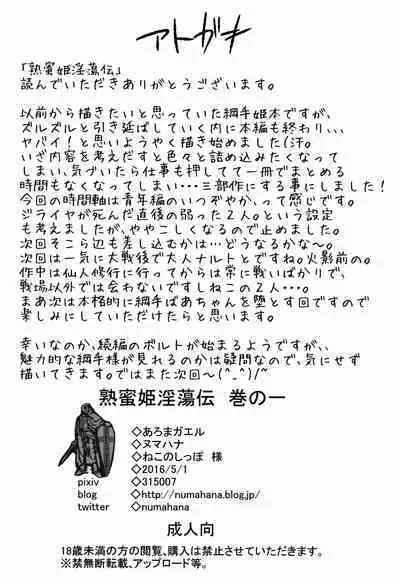 アトガキ
『熟蜜姫淫蕩伝』
読んでいただきありがとうございます。
以前から描きたいと思っていた綱手姫本ですが、
ズルズルと引き延ばしていく内に本編も終わり、、、
ヤバイ！と思いようやく描き始めました(汗。
いざ内容を考えだすと色々と詰め込みたくなって
しまい、気づいたら仕事も押してて一冊でまとめる
時間もなくなってしまい・・・三部作にする事にしました！
今回の時間軸は青年編のいつぞやか、って感じです。
ジライヤが死んだ直後の弱った２人。という設定
も考えましたが、ややこしくなるので止めました。
次回そこら辺も差し込むかは…どうなるかな〜。
次回は一気に大戦後で大人ナルトとですね。火影前の。
作中は仙人修行に行ってからは常に戦いばかりで、
戦場以外では会わないですしねこの２人・・・。
まあ次は本格的に綱手ばあちゃんを堕とす回ですので
楽しみにしていただけたらと思います。
幸いなのか、続編のボルトが始まるようですが、、
魅力的な綱手様が見れるのかは疑問なので、気にせず
描いてきます。ではまた次回〜(^_^)/~
熟蜜姫淫蕩伝 巻の一
◇あろまガエル
◇ヌマハナ
◇ねこのしっぽ 様
◇2016/5/1
pixiv ◇315007
blog ◇http://numahana.blog.jp/
twitter ◇numahana
成人向
18歳未満の方の閲覧、購入は禁止させていただきます。
※禁無断転載、アップロード等。